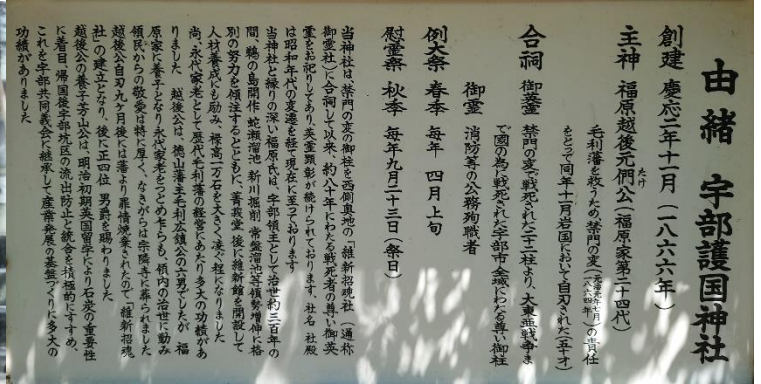 由緒 宇部護国神社
創建 慶応二年十一月（一八六六年）
主神 福原越後元僩公（福原家第二十四代）
たけ
毛利藩を救うため、禁門の変（元治元年七月 一八六四年）の責任
をとって同年十一月岩国において自刃された（五十才）
合祠 御英霊 禁門の変で戦死された二十二柱より、大東亜戦争ま
で国の為に戦死された宇部市全域にわたる尊い御柱
御霊 消防等の公務殉職者
例大祭 春季 毎年 四月上旬
慰霊祭 秋季 毎年九月二十三日（祭日）
当神社は、禁門の変の御柱を西側奥地の「維新招魂社」（通称
御霊社）に合祠して以来、約八十年にわたる戦死者の尊い御英
霊をお祀りしてあり、英霊顕彰が続けられております、社名 社殿
は昭和年代の変遷を経て現在に至っております
当神社と縁りの深い福原氏は、宇部領主として治世約三百年の
間、鵜の島開作 蛇瀬溜池 新川掘削 常盤溜池等領勢増伸に格
別の努力を傾注するとともに、菁莪堂 後に維新館を開設して
人材養成にも励み、禄高一万石を大きく凌ぐ程になりました
尚、永代家老として歴代毛利藩の経営にあたり多大の功績があ
りました 越後公は、徳山藩主毛利広鎮公の六男でしたが 福
原家に養子となり永代家老をつとめ乍らも、領内の治世に励み
領民からの敬愛は特に厚く、なきがらは宗隣寺に葬られました
越後公自刃九ヶ月後には藩より罪情焼棄されたので「維新招魂
社」の建立となり、後に正四位 男爵を賜わりました
越後公の養子芳山公は、明治初期英国留学により石炭の重要性
に着目、帰国後宇部坑区の流出防止と統合を積極的にすすめ、
これを宇部共同義会に継承して産業発展の基盤づくりに多大の
功績がありました